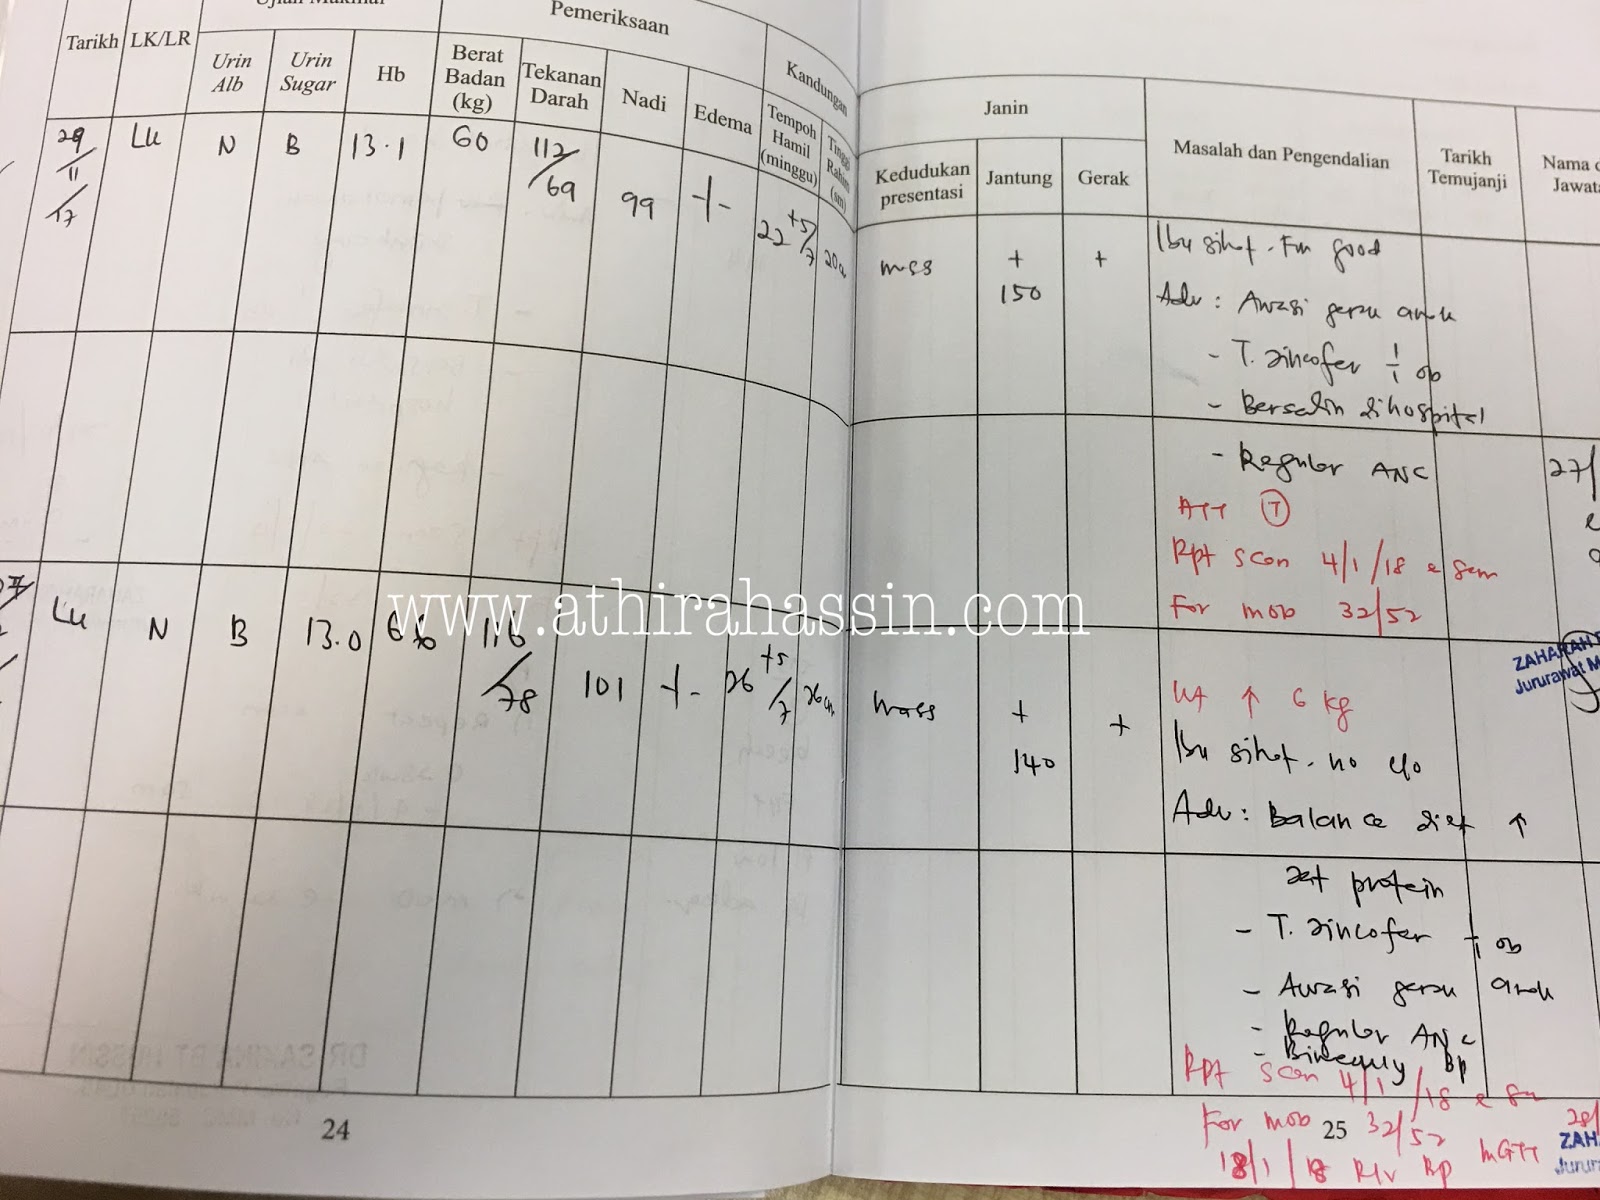 Pemeriksaan
Kandungan
Tarikh
LK/LR
Urin
Alb
Urin
Sugar
Hb
Berat
Badan
(kg)
Tekanan
Darah
Nadi
Edema
Tempoh
Hamil
(minggu)
Tinggi
Rahim
(sm)
29/11/17
N
B
13.1
60
112/69
99
22 +5/7
Janin
Kedudukan
presentasi
Jantung
Gerak
Masalah dan Pengendalian
Tarikh
Temujanji
Nama
Jawat
+
150
+
Ibu sihat. Fm good
Adv : Awasi gerak anak
- T. zincofer 1/1 OD
- Bersalin dihospital
- Regular ANC
27/
ATT T
Rpt scan 4/1/18 @ 8am
For mob 32/52
ZAHARAH
Jururawat M
www.athirahassin.com
N
B
13.0
66
116/78
101
26 +5/7
26cm
+
140
+
Wt ↑ 6 kg
Ibu sihat. no c/o
Adv : Balance diet ↑
protein
- T. zincofer 1/1 OD
- Awasi gerak anak
- Regular ANC
- Biweekly BP
Rpt scan 4/1/18 @ 8am
For mob 32/52 MGTT
18/1/18 R/v BP
28/
ZAH
Jurur
24
25